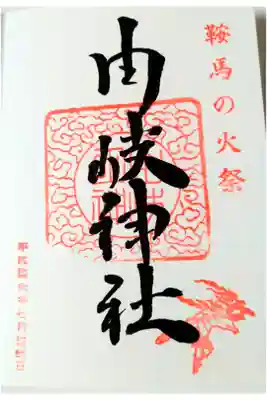 鞍馬の火祭
由岐神社